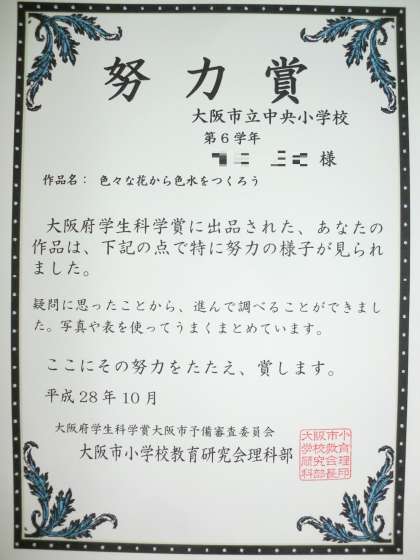 努力賞
大阪市立中央小学校
第6学年
様
作品名： 色々な花から色水をつくろう
大阪府学生科学賞に出品された、あなたの
作品は、下記の点で特に努力の様子が見られ
ました。
疑問に思ったことから、進んで調べることができまし
た。写真や表を使ってうまくまとめています。
ここにその努力をたたえ、賞します。
平成28年10月
大阪府学生科学賞大阪市予備審査委員会
大阪市小学校教育研究会理科部